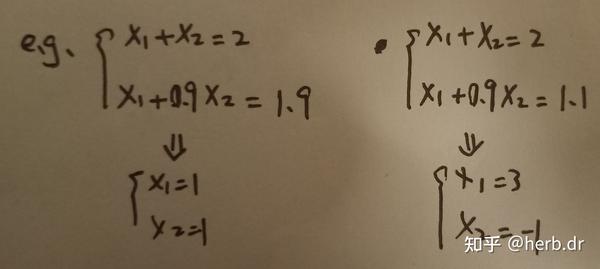 e.g. { x₁+x₂=2
x₁+0.9x₂=1.9
⇓
{ x₁=1
x₂=1
• { x₁+x₂=2
x₁+0.9x₂=1.1
⇓
{ x₁=3
x₂=-1
知乎 @herb.dr